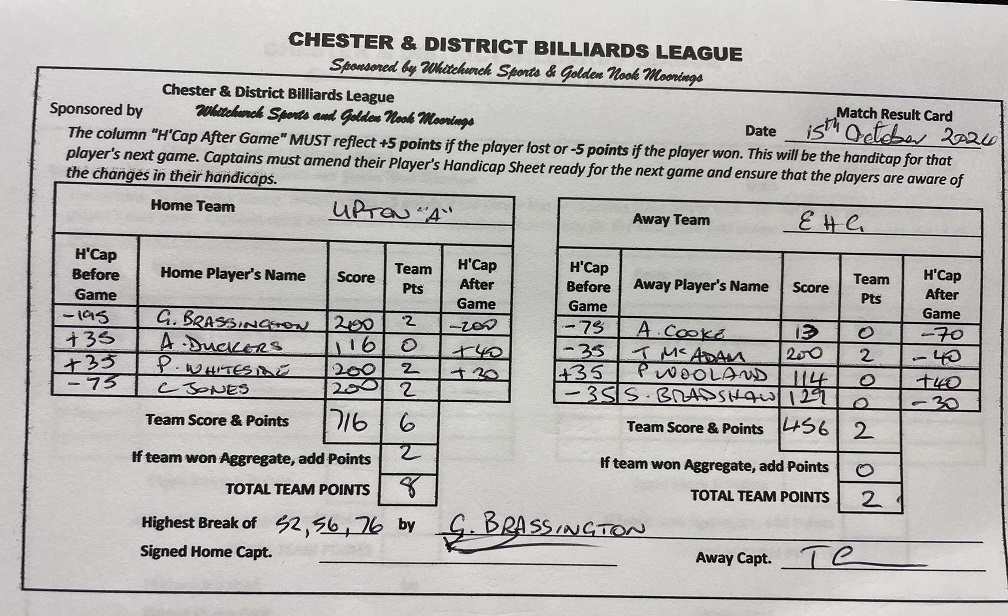 CHESTER & DISTRICT BILLIARDS LEAGUE
Sponsored by Whitchurch Sports & Golden Nook Moorings
Chester & District Billiards League
Sponsored by Whitchurch Sports and Golden Nook Moorings
Match Result Card
Date 15th October 2024
The column "H'Cap After Game" MUST reflect +5 points if the player lost or -5 points if the player won. This will be the handitap for that
player's next game. Captains must amend their Player's Handicap Sheet ready for the next game and ensure that the players are aware of
the changes in their handicaps.
Home Team UPTON "A"
H'Cap Before Game Home Player's Name Score Team Pts H'Cap After Game
-195 G. BRASSINGTON 200 2 -200
+35 A. DUCKERS 116 0 +40
+35 P. WHITESIDE 200 2 +30
-75 C JONES 200 2
Team Score & Points 716 6
If team won Aggregate, add Points 2
TOTAL TEAM POINTS 8
Away Team EHC
H'Cap Before Game Away Player's Name Score Team Pts H'Cap After Game
-75 A. COOKE 13 0 -70
-35 T McADAM 200 2 -40
+35 P WOOLAND 114 0 +40
-35 S. BRADSHAW 129 0 -30
Team Score & Points 456 2
If team won Aggregate, add Points 0
TOTAL TEAM POINTS 2
Highest Break of 52, 56, 76 by G. BRASSINGTON
Signed Home Capt.
Away Capt. TC